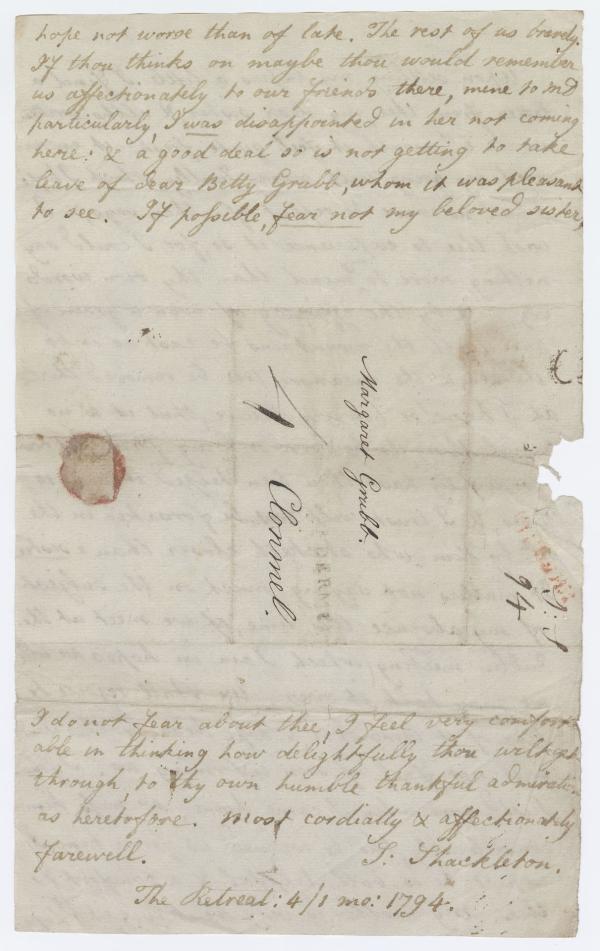 hope not worse than of late. The rest of us bravely.
If thou thinks on maybe thou would remember
us affectionately to our friends there, mine to MD
particularly, I was disappointed in her not coming
here: & a good deal so is not getting to take
leave of dear Betty Grubb, whom it was pleasant
to see. If possible, fear not my beloved sister,
Margaret Grubb.
Clonmel.
S: S
94
I do not fear about thee, I feel very comfort-
able in thinking how delightfully thou wilt get
through, to thy own humble thankful admiration
as heretofore. most cordially & affectionately
farewell. S: Shackleton.
The Retreat: 4/1 mo: 1794.